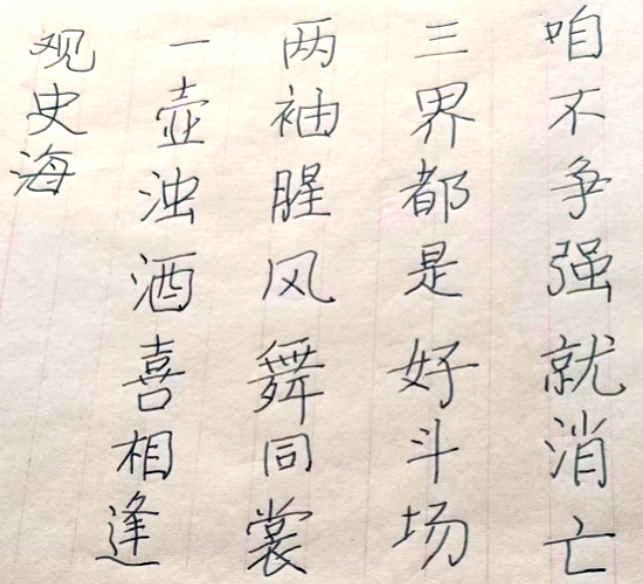 观史海
一壶浊酒喜相逢
两袖腥风舞同裳
三界都是好斗场
咱不争强就消亡